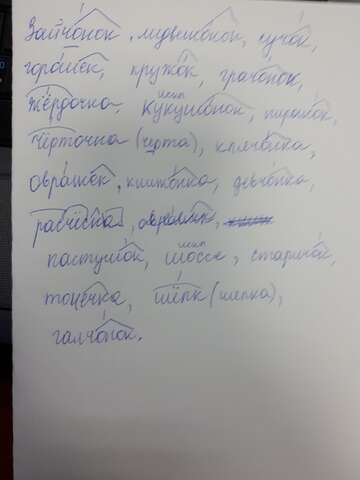 Зайчонок, медвежонок, сучок,
горошек, кружок, грачонок,
жёрдочка, кукушонок, пирожок,
чёрточка (черта), клячонка,
овражек, книжонка, девчонка,
расчёска, овражек,
пастушок, шоссе, старичок,
точечка, шёлк (шелка),
галчонок.